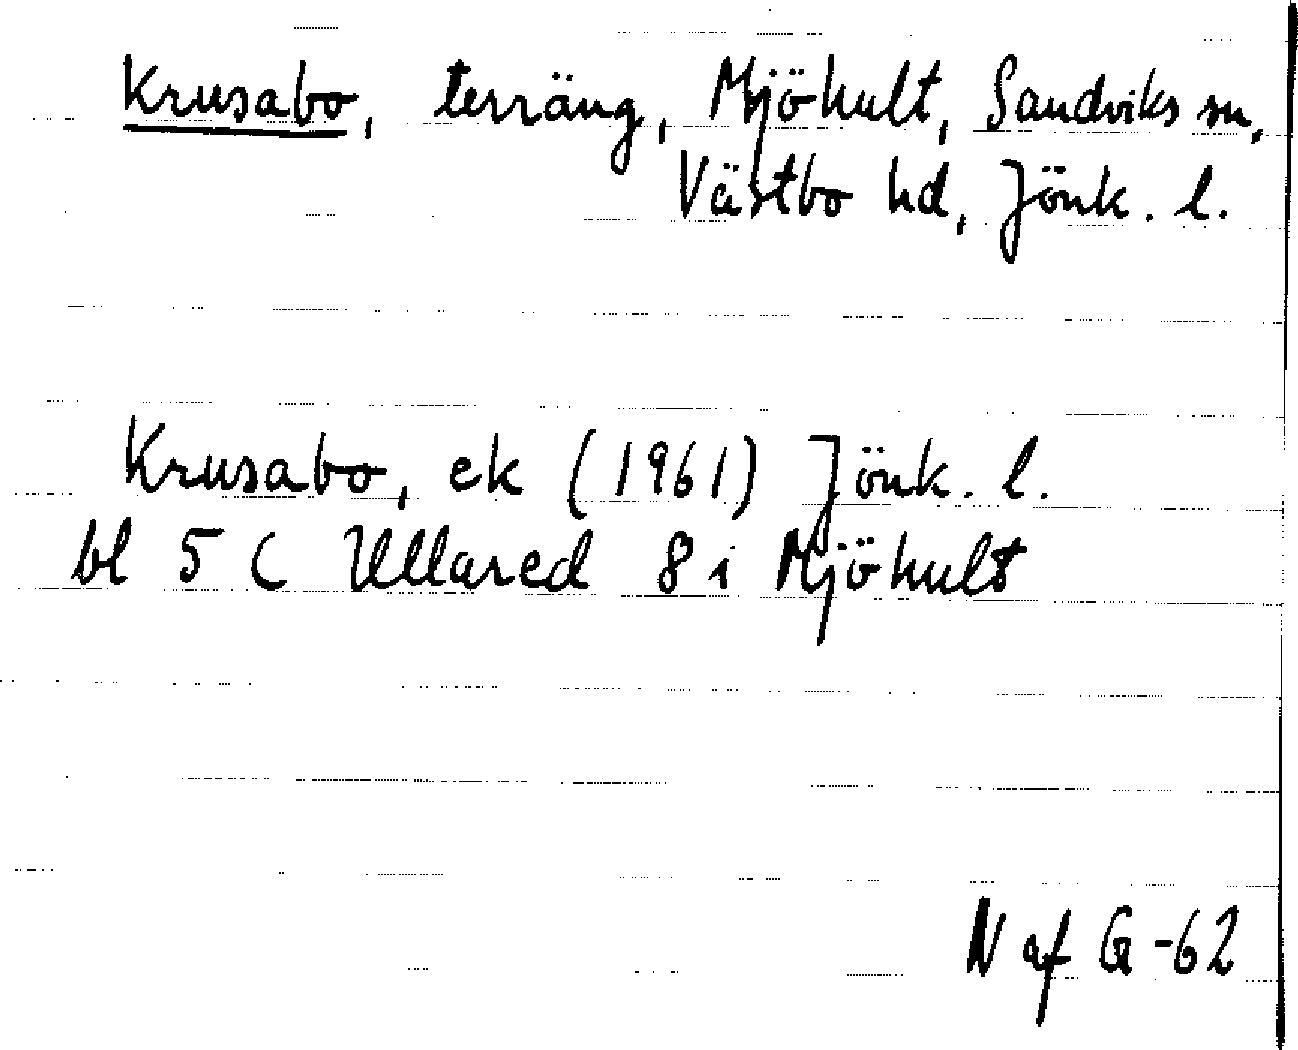 Krusabo, terräng, Mjöhult, Sandviks sn,
Västbo hd, Jönk. l.
Krusabo, ek (1961) Jönk. l.
bl 5 C Ullared 8 i Mjöhult
N af G -62